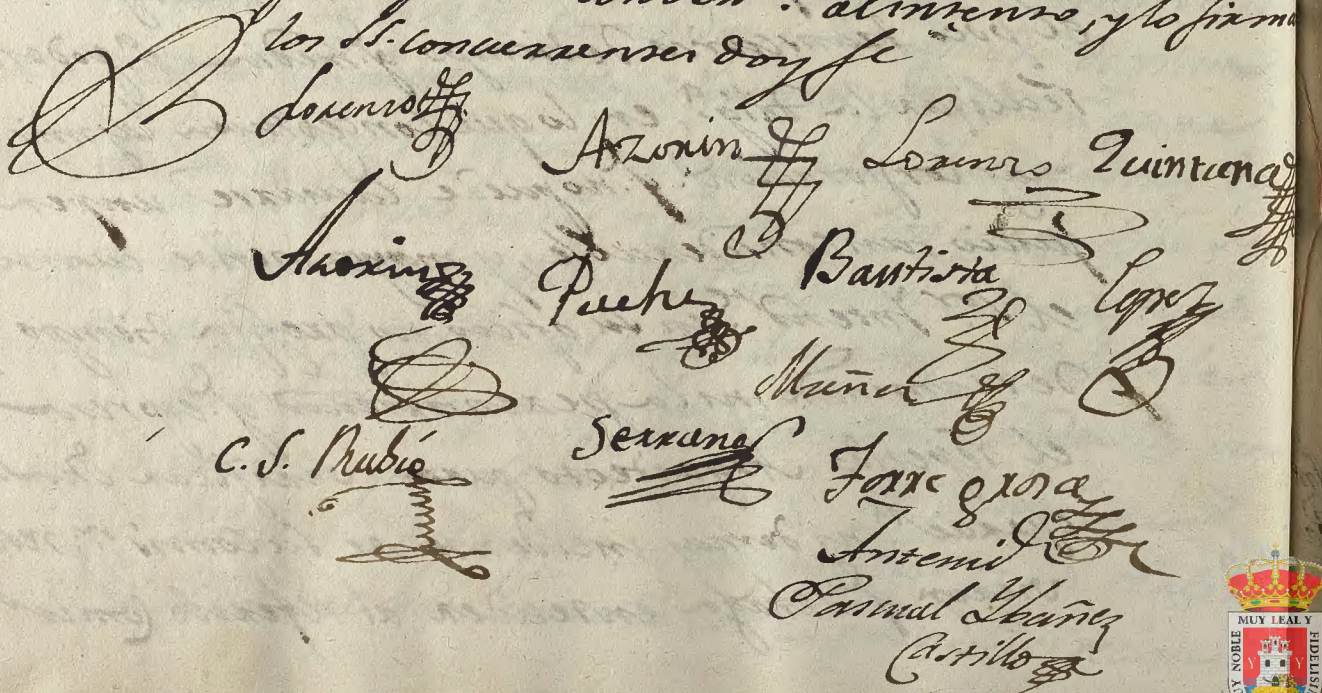 al intento, y lo firma
los SS. concurrentes doy fe
Lorenzo
Azorin
Lorenzo
Quintana
Azorin
Puche
Bautista
Lopez
Muñoz
C. S. Rubio
Serrano
Torregrosa
Antemi
Pascual Ybañez
Castillo
MUY LEAL Y
Y NOBLE
FIDELIS